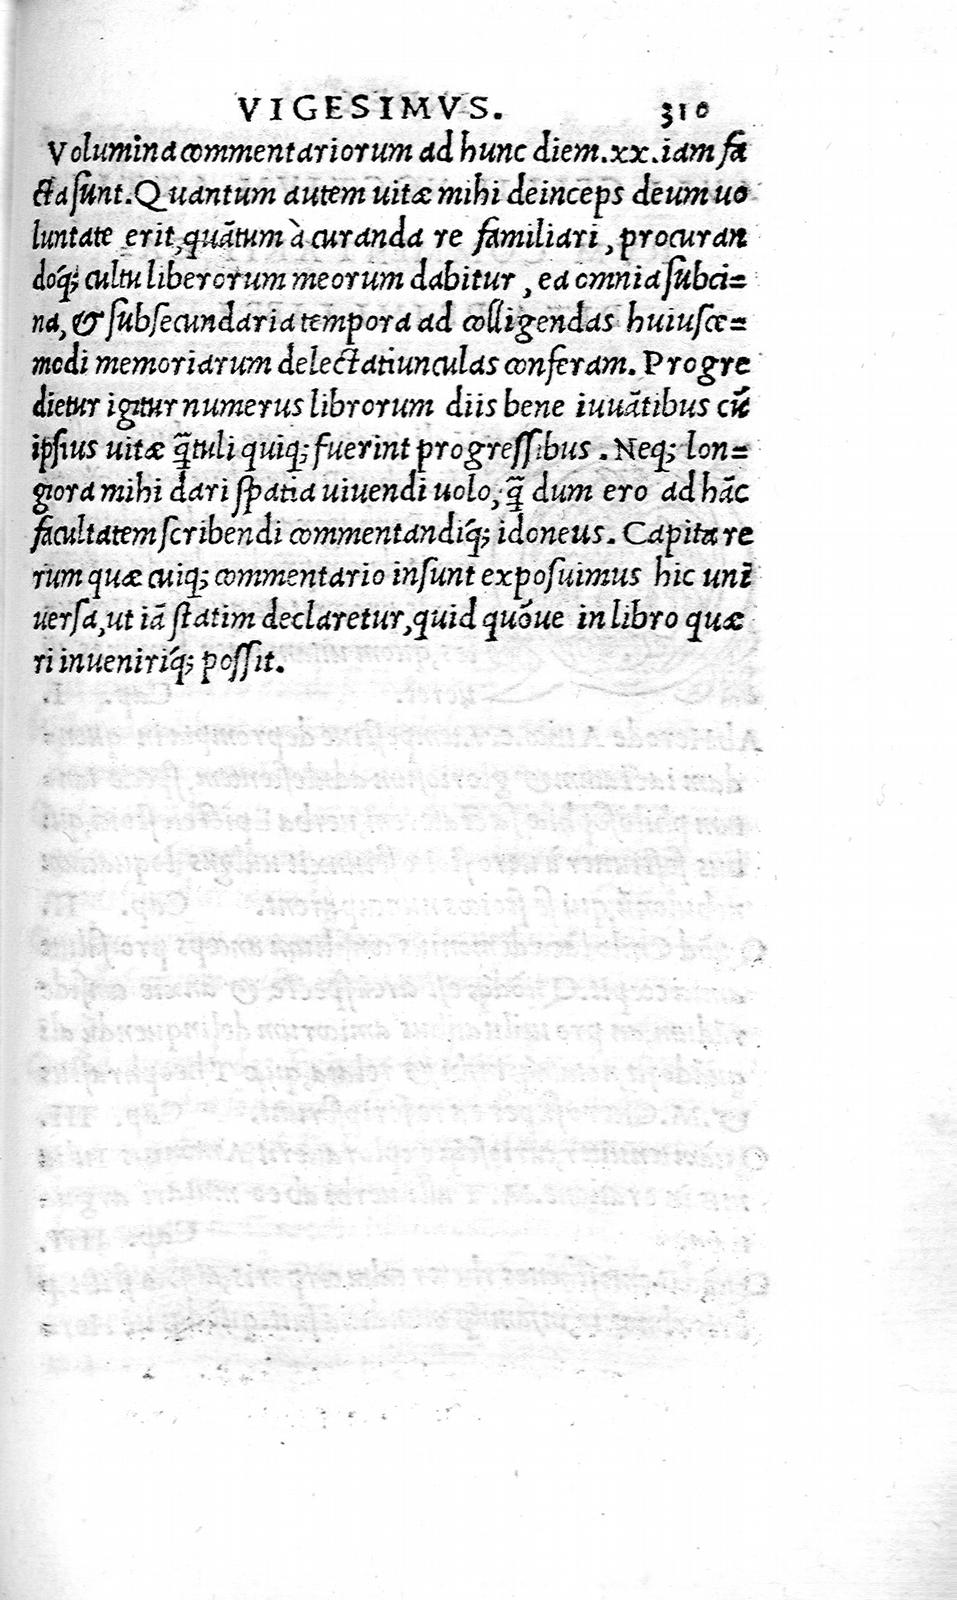 VIGESIMVS. 310
Volumina commentariorum ad hunc diem.xx.iam fa
cta sunt.Quantum autem uitæ mihi deinceps deum uo
luntate erit,quãtum à curanda re familiari, procuran
doq́; cultu liberorum meorum dabitur, ea omnia subci=
na, & subsecundaria tempora ad colligendas huiusce=
modi memoriarum delectatiunculas conferam. Progre
dietur igitur numerus librorum diis bene iuuãtibus cũ
ipsius uitæ q̃tuli quiq; fuerint progressibus. Neq; lon=
giora mihi dari spatia uiuendi uolo, q̃ dum ero ad hãc
facultatem scribendi commentandiq́; idoneus. Capita re
rum quæ cuiq; commentario insunt exposuimus hic uni
uersa,ut iã statim declaretur,quid quóue in libro quæ
ri inueniriq́; possit.